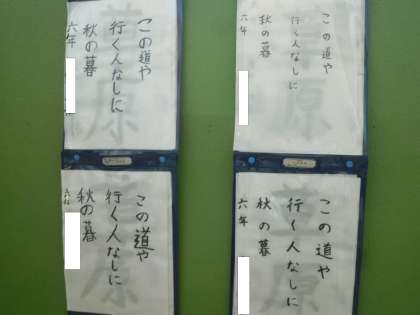 この道や
行く人なしに
秋の暮
六年
この道や
行く人なしに
秋の暮
六年
この道や
行く人なしに
秋の暮
六年
この道や
行く人なしに
秋の暮
六年